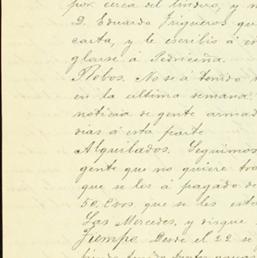 por cerca del lindero, y
D. Eduardo Trigueros que
carta, y le escribió á
glarse á Pedriceña.
Robos. No se á tenido
en la ultima semana
noticia de gente armad
dias á esta parte
Alquilados. Seguimos
gente que no quiere tra
que se les á pagado de
50, Cvos que se les est
Las Mercedes, y
Tiempo. Desde el 22 se